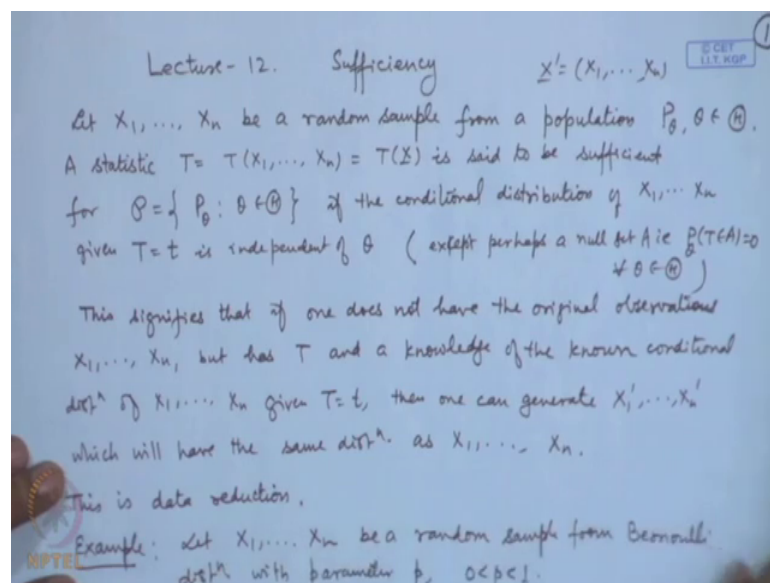 1
© CET
I.I.T. KGP
Lecture-12. Sufficiency X' = (X₁, ..., Xₙ)
Let X₁, ..., Xₙ be a random sample from a population P_θ, θ ∈ Ⓗ.
A statistic T = T(X₁, ..., Xₙ) = T(X) is said to be sufficient
for 𝒫 = { P_θ : θ ∈ Ⓗ } if the conditional distribution of X₁, ... Xₙ
given T = t is independent of θ ( except perhaps a null set A ie P_θ(T∈A)=0
∀ θ ∈ Ⓗ )
This signifies that if one does not have the original observations
X₁, ..., Xₙ, but has T and a knowledge of the known conditional
distⁿ of X₁, ... Xₙ given T = t, then one can generate X₁', ..., Xₙ'
which will have the same distⁿ. as X₁, ... , Xₙ.
This is data reduction.
Example: Let X₁, ... Xₙ be a random sample from Bernoulli
distⁿ with parameter p, 0<p<1.
NPTEL